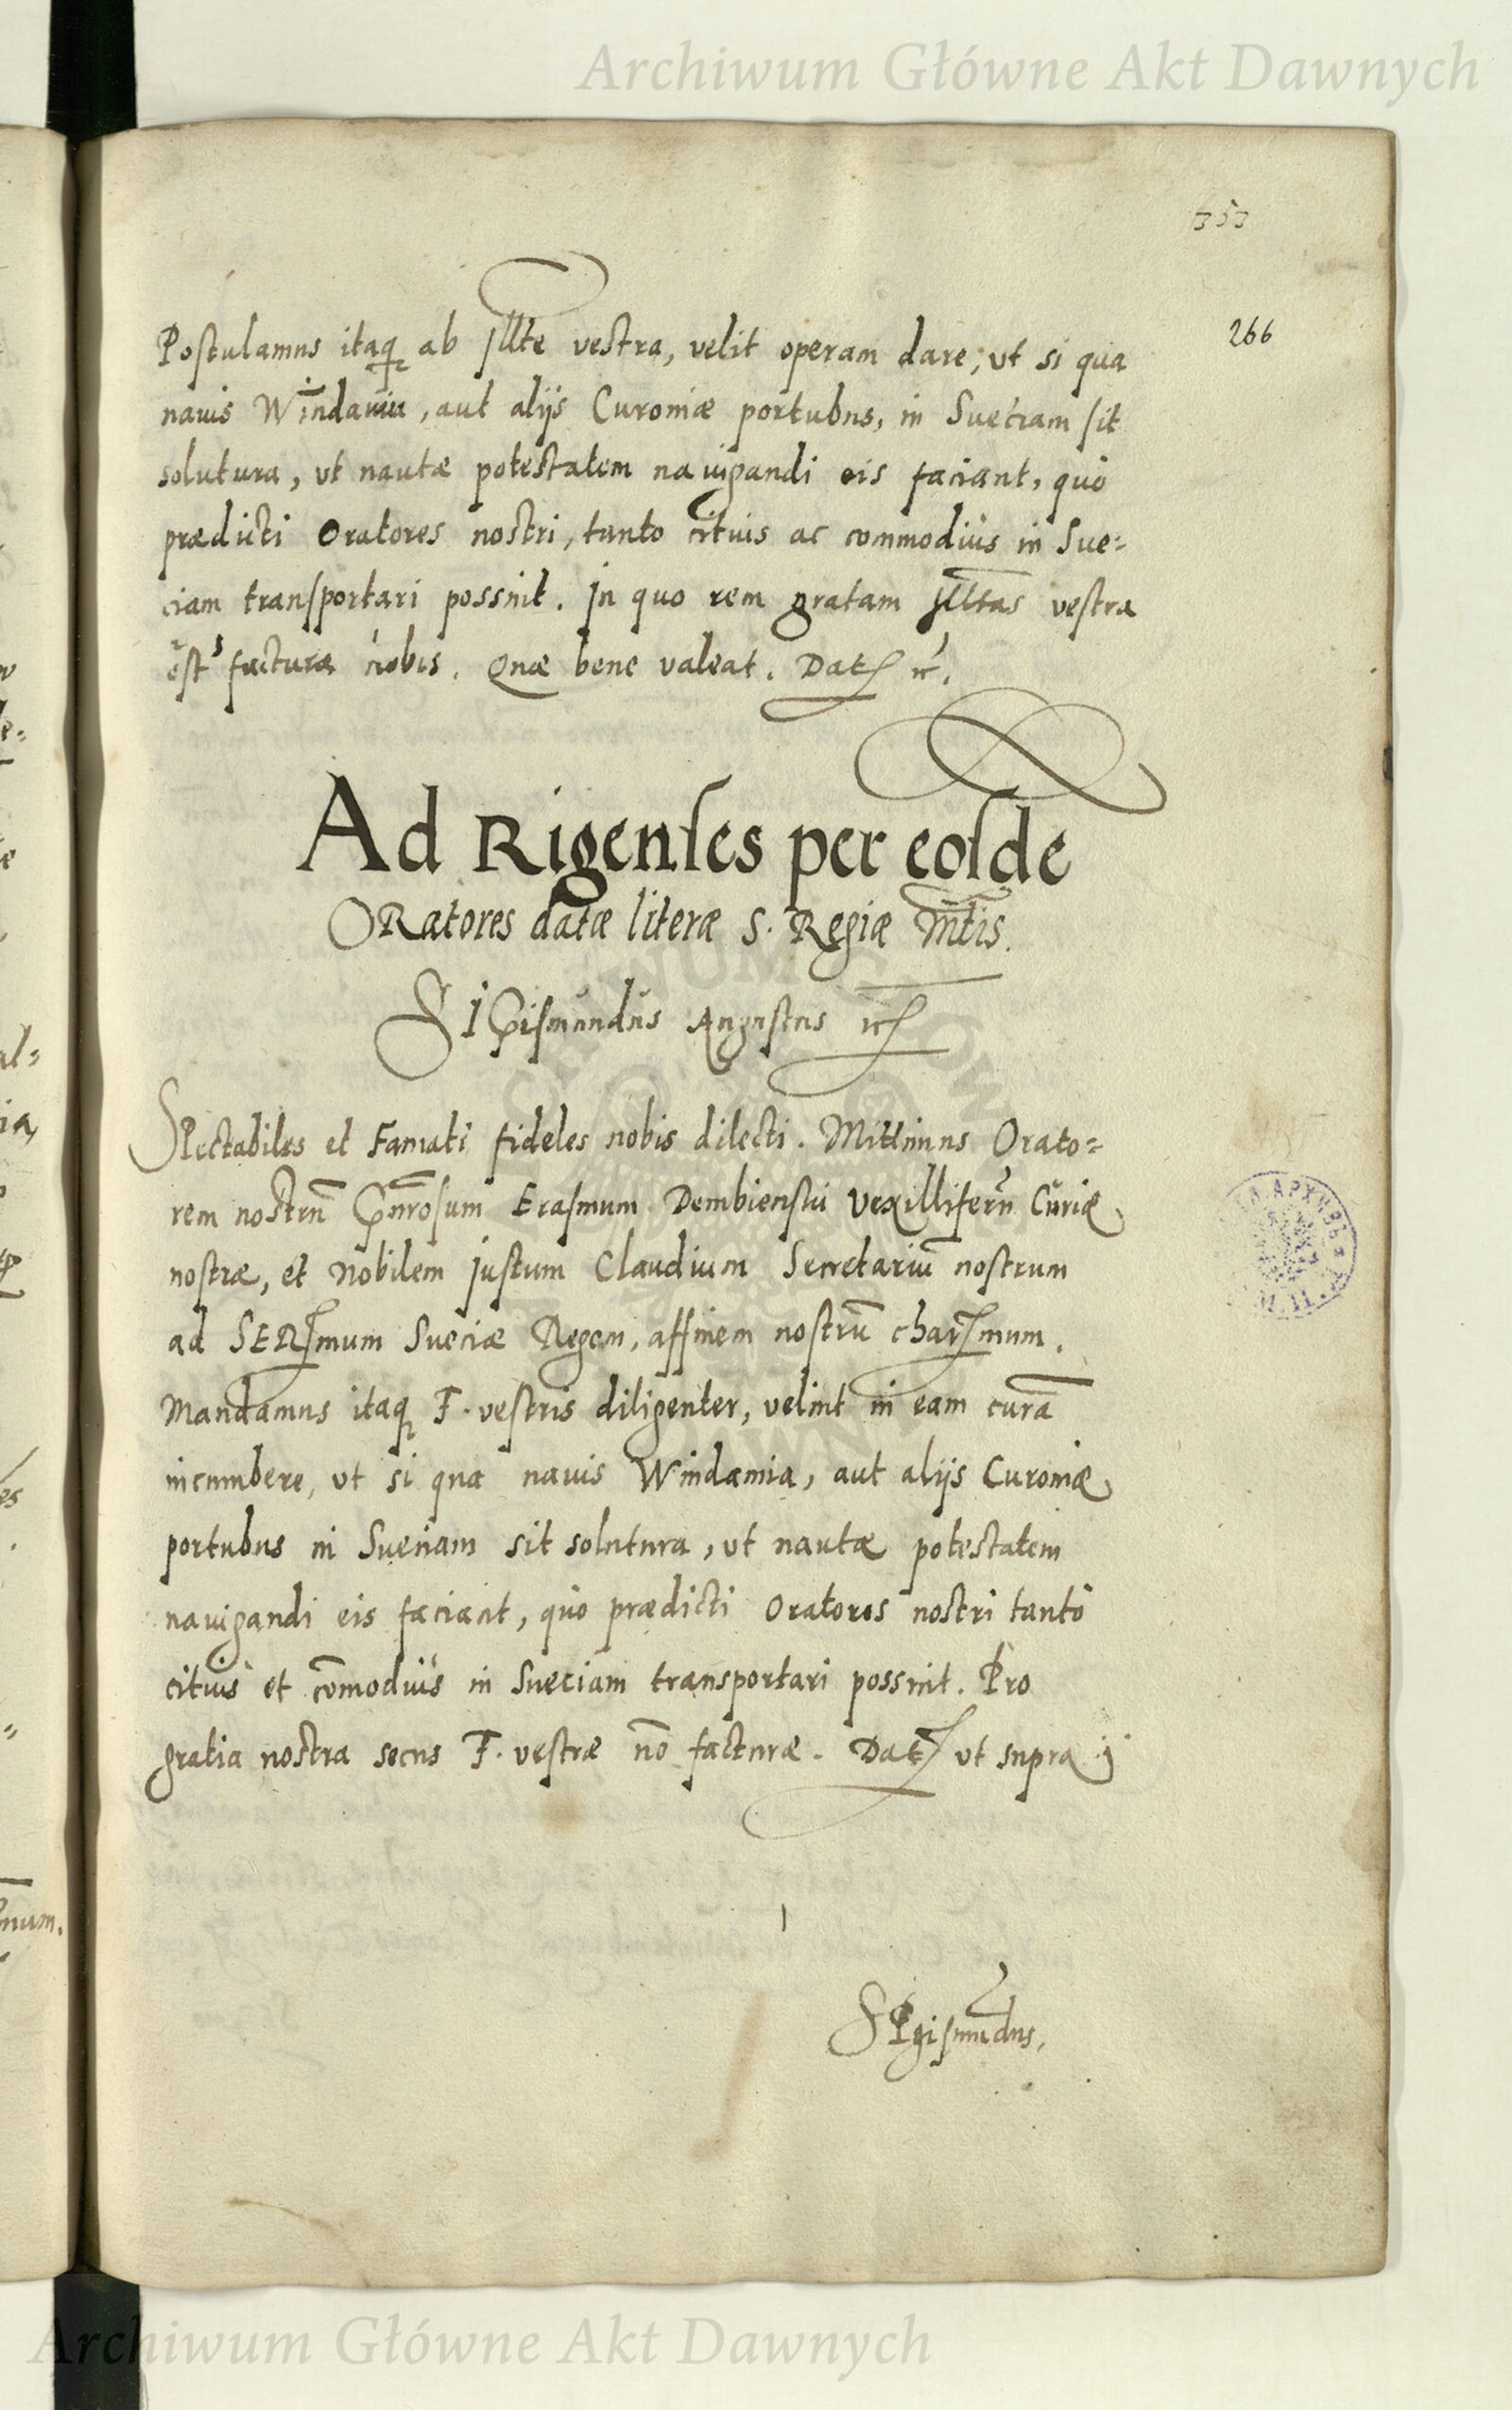 Archiwum Główne Akt Dawnych
353
266
Postulamus itaq ab Jllte vestra, velit operam dare, ut si qua
nauis Windauia, aut alijs Curoniæ portubus, in Sueciam sit
solutura, ut nautæ potestatem nauigandi eis faciant, quò
prædicti Oratores nostri, tanto citius ac commodius in Sue=
ciam transportari possint. In quo rem gratam Jlltas vestra
est factura nobis. Quæ bene valeat. Dat etc.
Ad Rigenses per eosdē
Oratores datæ literæ S. Regiæ Mtis.
Sigismundus Augustus etc
Spectabiles et Famati fideles nobis dilecti. Mittimus Orato=
rem nostrū Gnrōsum Erasmum Dembienskii Vexilliferū Curiæ
nostræ, et Nobilem Justum Claudium Secretariū nostrum
ad SERmum Sueciæ Regem, affinem nostrū charmum.
Mandamus itaq F. vestris diligenter, velint in eam curā
incumbere, ut si qua nauis Windauia, aut alijs Curoniæ
portubus in Sueciam sit solutura, ut nautæ potestatem
nauigandi eis faciant, quò prædicti Oratores nostri tantò
citius et cōmodius in Sueciam transportari possint. Pro
gratia nostra secus F. vestræ nō facturæ. Dat ut supra
Sigismūdus.
Archiwum Główne Akt Dawnych